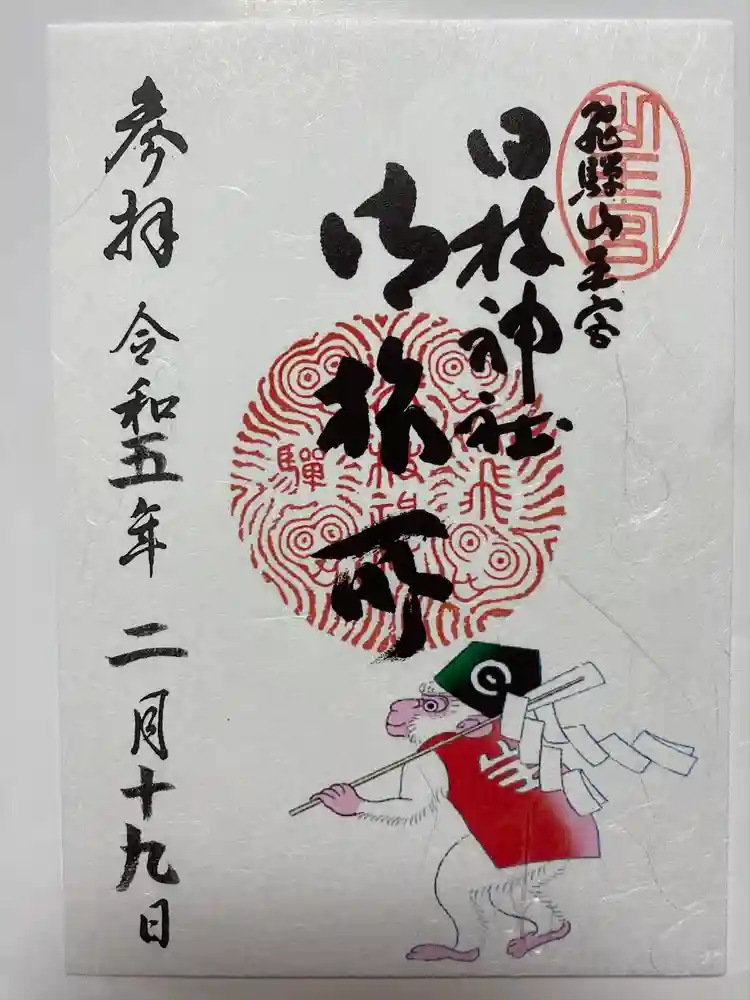 飛騨山王宮
日枝神社
御旅所
参拝 令和五年 二月十九日
山王宮
飛驒